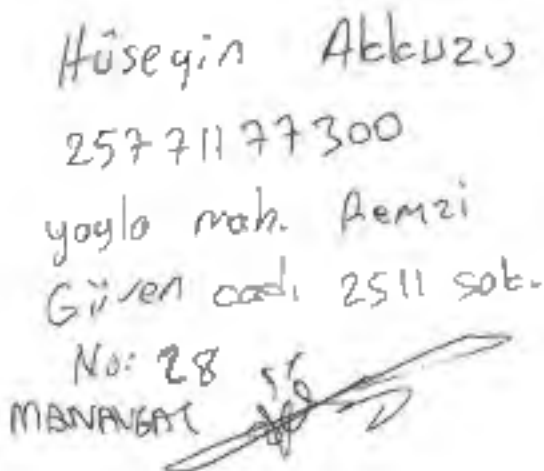 Hüseyin Akkuzu
25771177300
yayla mah. Remzi
Güven cad. 2511 sok.
No: 28
MANAVGAT